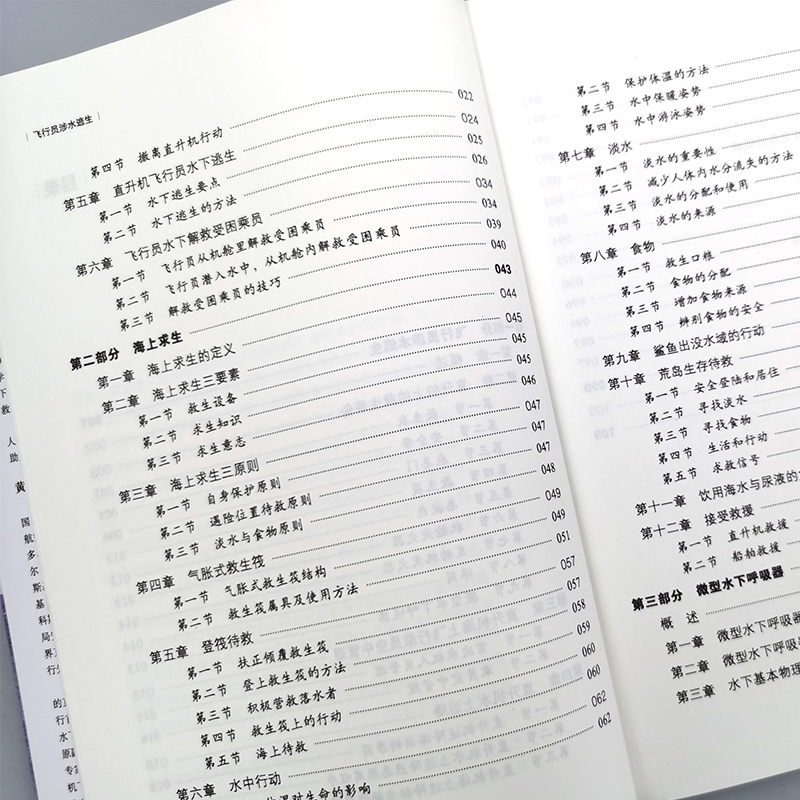 飞行员涉水逃生
第四节 撤离直升机行动 022
第五章 直升机飞行员水下逃生 024
第一节 水下逃生要点 025
第二节 水下逃生的方法 026
第六章 飞行员水下解救受困乘员 034
第一节 飞行员从机舱里解救受困乘员 034
第二节 飞行员潜入水中，从机舱内解救受困乘员 039
第三节 解救受困乘员的技巧 040
第二部分 海上求生 043
第一章 海上求生的定义 044
第二章 海上求生三要素 045
第一节 救生设备 045
第二节 求生知识 045
第三节 求生意志 046
第三章 海上求生三原则 047
第一节 自身保护原则 047
第二节 遇险位置待救原则 047
第三节 淡水与食物原则 048
第四章 气胀式救生筏 049
第一节 气胀式救生筏结构 049
第二节 救生筏属具及使用方法 051
第五章 登筏待救 057
第一节 扶正倾覆救生筏 057
第二节 登上救生筏的方法 058
第三节 积极营救落水者 059
第四节 救生筏上的行动 060
第五节 海上待救 060
第六章 水中行动 062
温对生命的影响 062
第二节 保护体温的方法
第三节 水中保暖姿势
第四节 水中游泳姿势
第七章 淡水
第一节 淡水的重要性
第二节 减少人体内水分流失的方法
第三节 淡水的分配和使用
第四节 淡水的来源
第八章 食物
第一节 救生口粮
第二节 食物的分配
第三节 增加食物来源
第四节 辨别食物的安全
第九章 鲨鱼出没水域的行动
第十章 荒岛生存待救
第一节 安全登陆和居住
第二节 寻找淡水
第三节 寻找食物
第四节 生活和行动
第五节 求救信号
第十一章 饮用海水与尿液的
第十二章 接受救援
第一节 直升机救援
第二节 船舶救援
第三部分 微型水下呼吸器
概 述
第一章 微型水下呼吸器
第二章 微型水下呼吸
第三章 水下基本物理